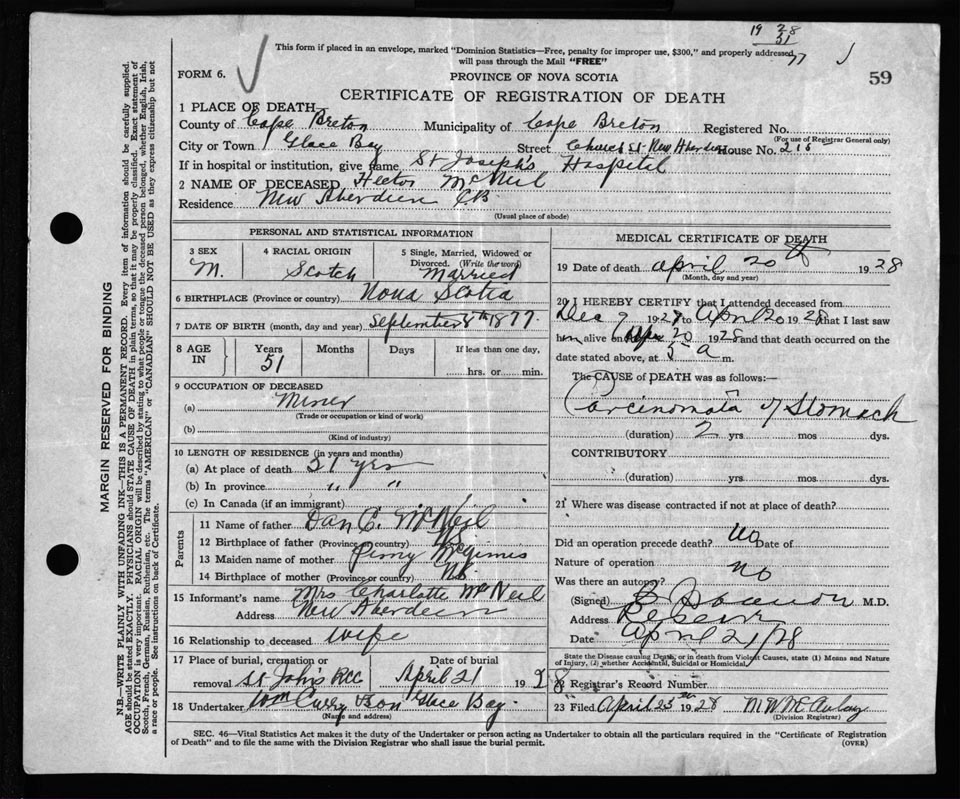 19 28
31
77
This form if placed in an envelope, marked "Dominion Statistics—Free, penalty for improper use, $300," and properly addressed,
will pass through the Mail "FREE"
FORM 6.
PROVINCE OF NOVA SCOTIA
59
CERTIFICATE OF REGISTRATION OF DEATH
1 PLACE OF DEATH
County of Cape Breton Municipality of Cape Breton Registered No.
(For use of Registrar General only)
City or Town Glace Bay Street Church St New Aberdeen House No. 216
If in hospital or institution, give name St Joseph's Hospital
2 NAME OF DECEASED Hector McNeil
Residence New Aberdeen CB
(Usual place of abode)
PERSONAL AND STATISTICAL INFORMATION
3 SEX M. 4 RACIAL ORIGIN Scotch 5 Single, Married, Widowed or Divorced. (Write the word) Married
6 BIRTHPLACE (Province or country) Nova Scotia
7 DATE OF BIRTH (month, day and year) September 8th 1877
8 AGE IN Years 51 Months Days If less than one day, hrs. or min.
9 OCCUPATION OF DECEASED
(a) Miner
(Trade or occupation or kind of work)
(b)
(Kind of industry)
10 LENGTH OF RESIDENCE (in years and months)
(a) At place of death 51 yrs
(b) In province " "
(c) In Canada (if an immigrant)
Parents
11 Name of father Dan C. McNeil
12 Birthplace of father (Province or country) NS
13 Maiden name of mother McGinnis
14 Birthplace of mother (Province or country) NS
15 Informant's name Mrs Charlotte McNeil
Address New Aberdeen
16 Relationship to deceased wife
17 Place of burial, cremation or removal St John's RCC Date of burial April 21 1928
18 Undertaker Wm Curry & Son Glace Bay
(Name and address)
MEDICAL CERTIFICATE OF DEATH
19 Date of death April 20th 1928
(Month, day and year)
20 I HEREBY CERTIFY that I attended deceased from
Dec 9 1927 to April 20 1928 that I last saw
him alive on Apr 20 1928 and that death occurred on the
date stated above, at 5 a m.
The CAUSE of DEATH was as follows:—
Carcinomata of Stomach
(duration) 2 yrs. mos. dys.
CONTRIBUTORY
(duration) yrs. mos. dys.
21 Where was disease contracted if not at place of death?
Did an operation precede death? No Date of
Nature of operation
Was there an autopsy? no
(Signed) M.D.
Address
Date April 21/28
State the Disease causing Death, or in death from Violent Causes, state (1) Means and Nature
of Injury, (2) whether Accidental, Suicidal or Homicidal.
22 Registrar's Record Number
23 Filed April 25th 1928
(Division Registrar)
SEC. 46—Vital Statistics Act makes it the duty of the Undertaker or person acting as Undertaker to obtain all the particulars required in the "Certificate of Registration
of Death" and to file the same with the Division Registrar who shall issue the burial permit.
(OVER)
MARGIN RESERVED FOR BINDING
N.B.—WRITE PLAINLY WITH UNFADING INK—THIS IS A PERMANENT RECORD. Every item of information should be carefully supplied.
AGE should be stated EXACTLY. PHYSICIANS should STATE CAUSE OF DEATH in plain terms, so that it may be properly classified. Exact statement of
OCCUPATION is very important. RACIAL ORIGIN will be described by stating to what people or tongue the deceased person belonged, whether English, Irish,
Scotch, French, German, Russian, Ruthenian, etc. The terms "AMERICAN" or "CANADIAN" SHOULD NOT BE USED as they express citizenship but not
a race or people. See instructions on back of Certificate.